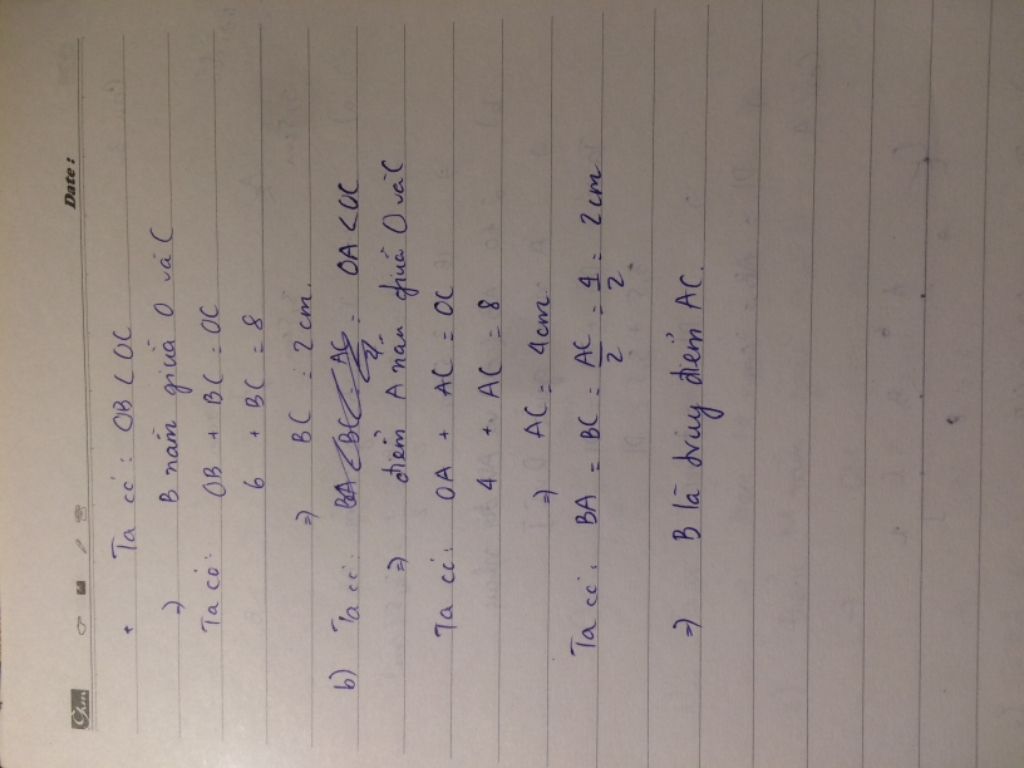 Date:
+ Ta có: OB < OC
=) B nằm giữa O và C
Ta có: OB + BC = OC
6 + BC = 8
=) BC = 2 cm.
b) Ta có: BA < BC < AC = OA < OC
=) điểm A nằm giữa O và C
Ta có: OA + AC = OC
4 + AC = 8
=) AC = 4cm
Ta có: BA = BC = AC/2 = 4/2 = 2cm
=) B là trung điểm AC.